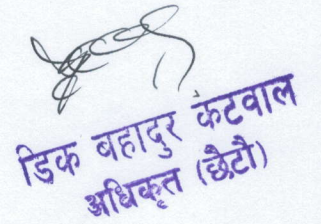 डिक बहादुर कंटवाल
अधिकृत (छैटौं)